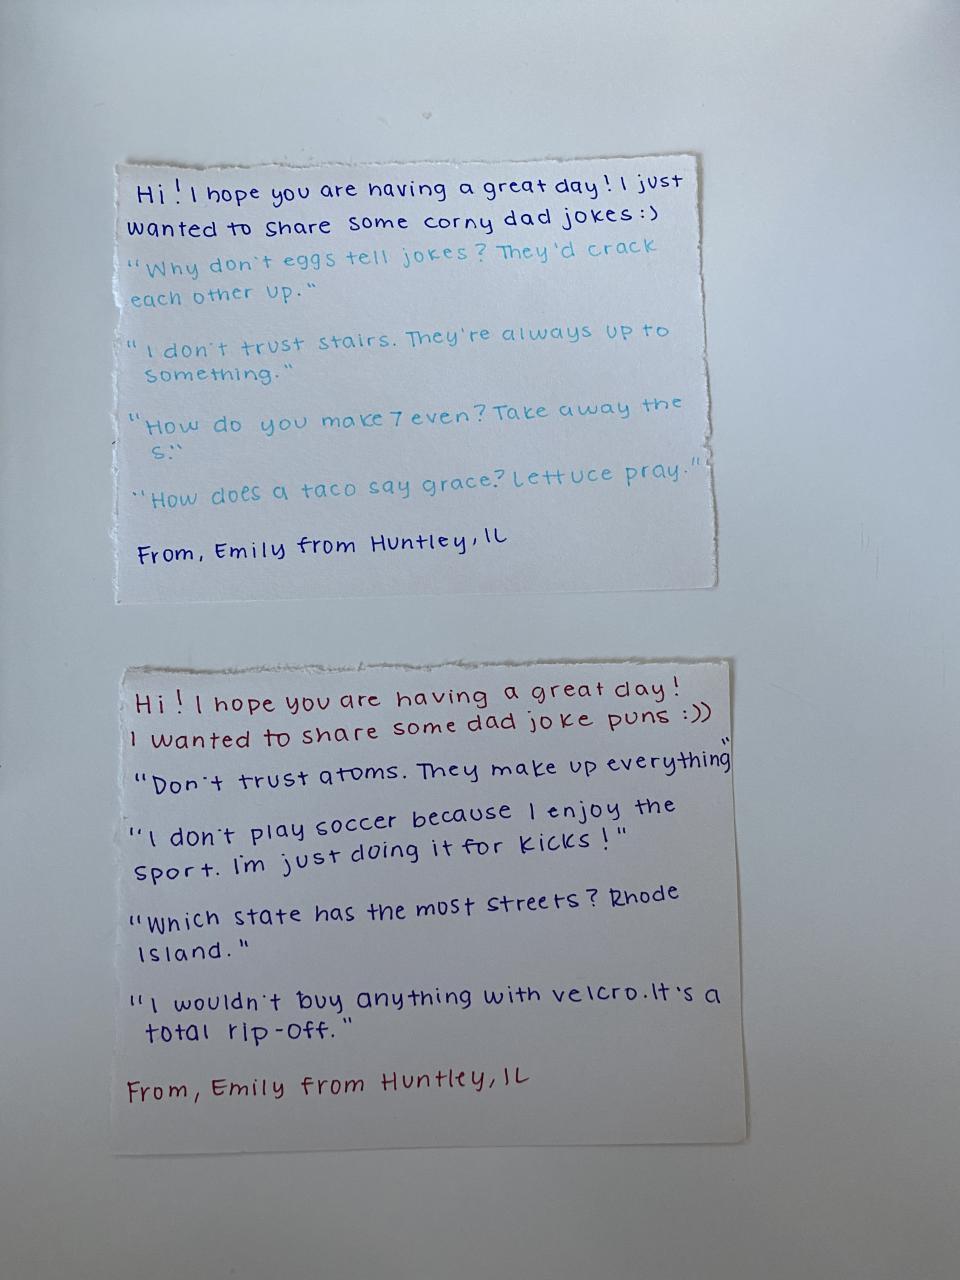 Hi! I hope you are having a great day! I just
wanted to share some corny dad jokes:)
"Why don't eggs tell jokes? They'd crack
each other up."
"I don't trust stairs. They're always up to
something."
"How do you make 7 even? Take away the
s."
"How does a taco say grace? Lettuce pray."
From, Emily from Huntley, IL
Hi! I hope you are having a great day!
I wanted to share some dad joke puns :))
"Don't trust atoms. They make up everything"
"I don't play soccer because I enjoy the
sport. I'm just doing it for kicks!"
"Which state has the most streets? Rhode
Island."
"I wouldn't buy anything with velcro. It's a
total rip-off."
From, Emily from Huntley, IL